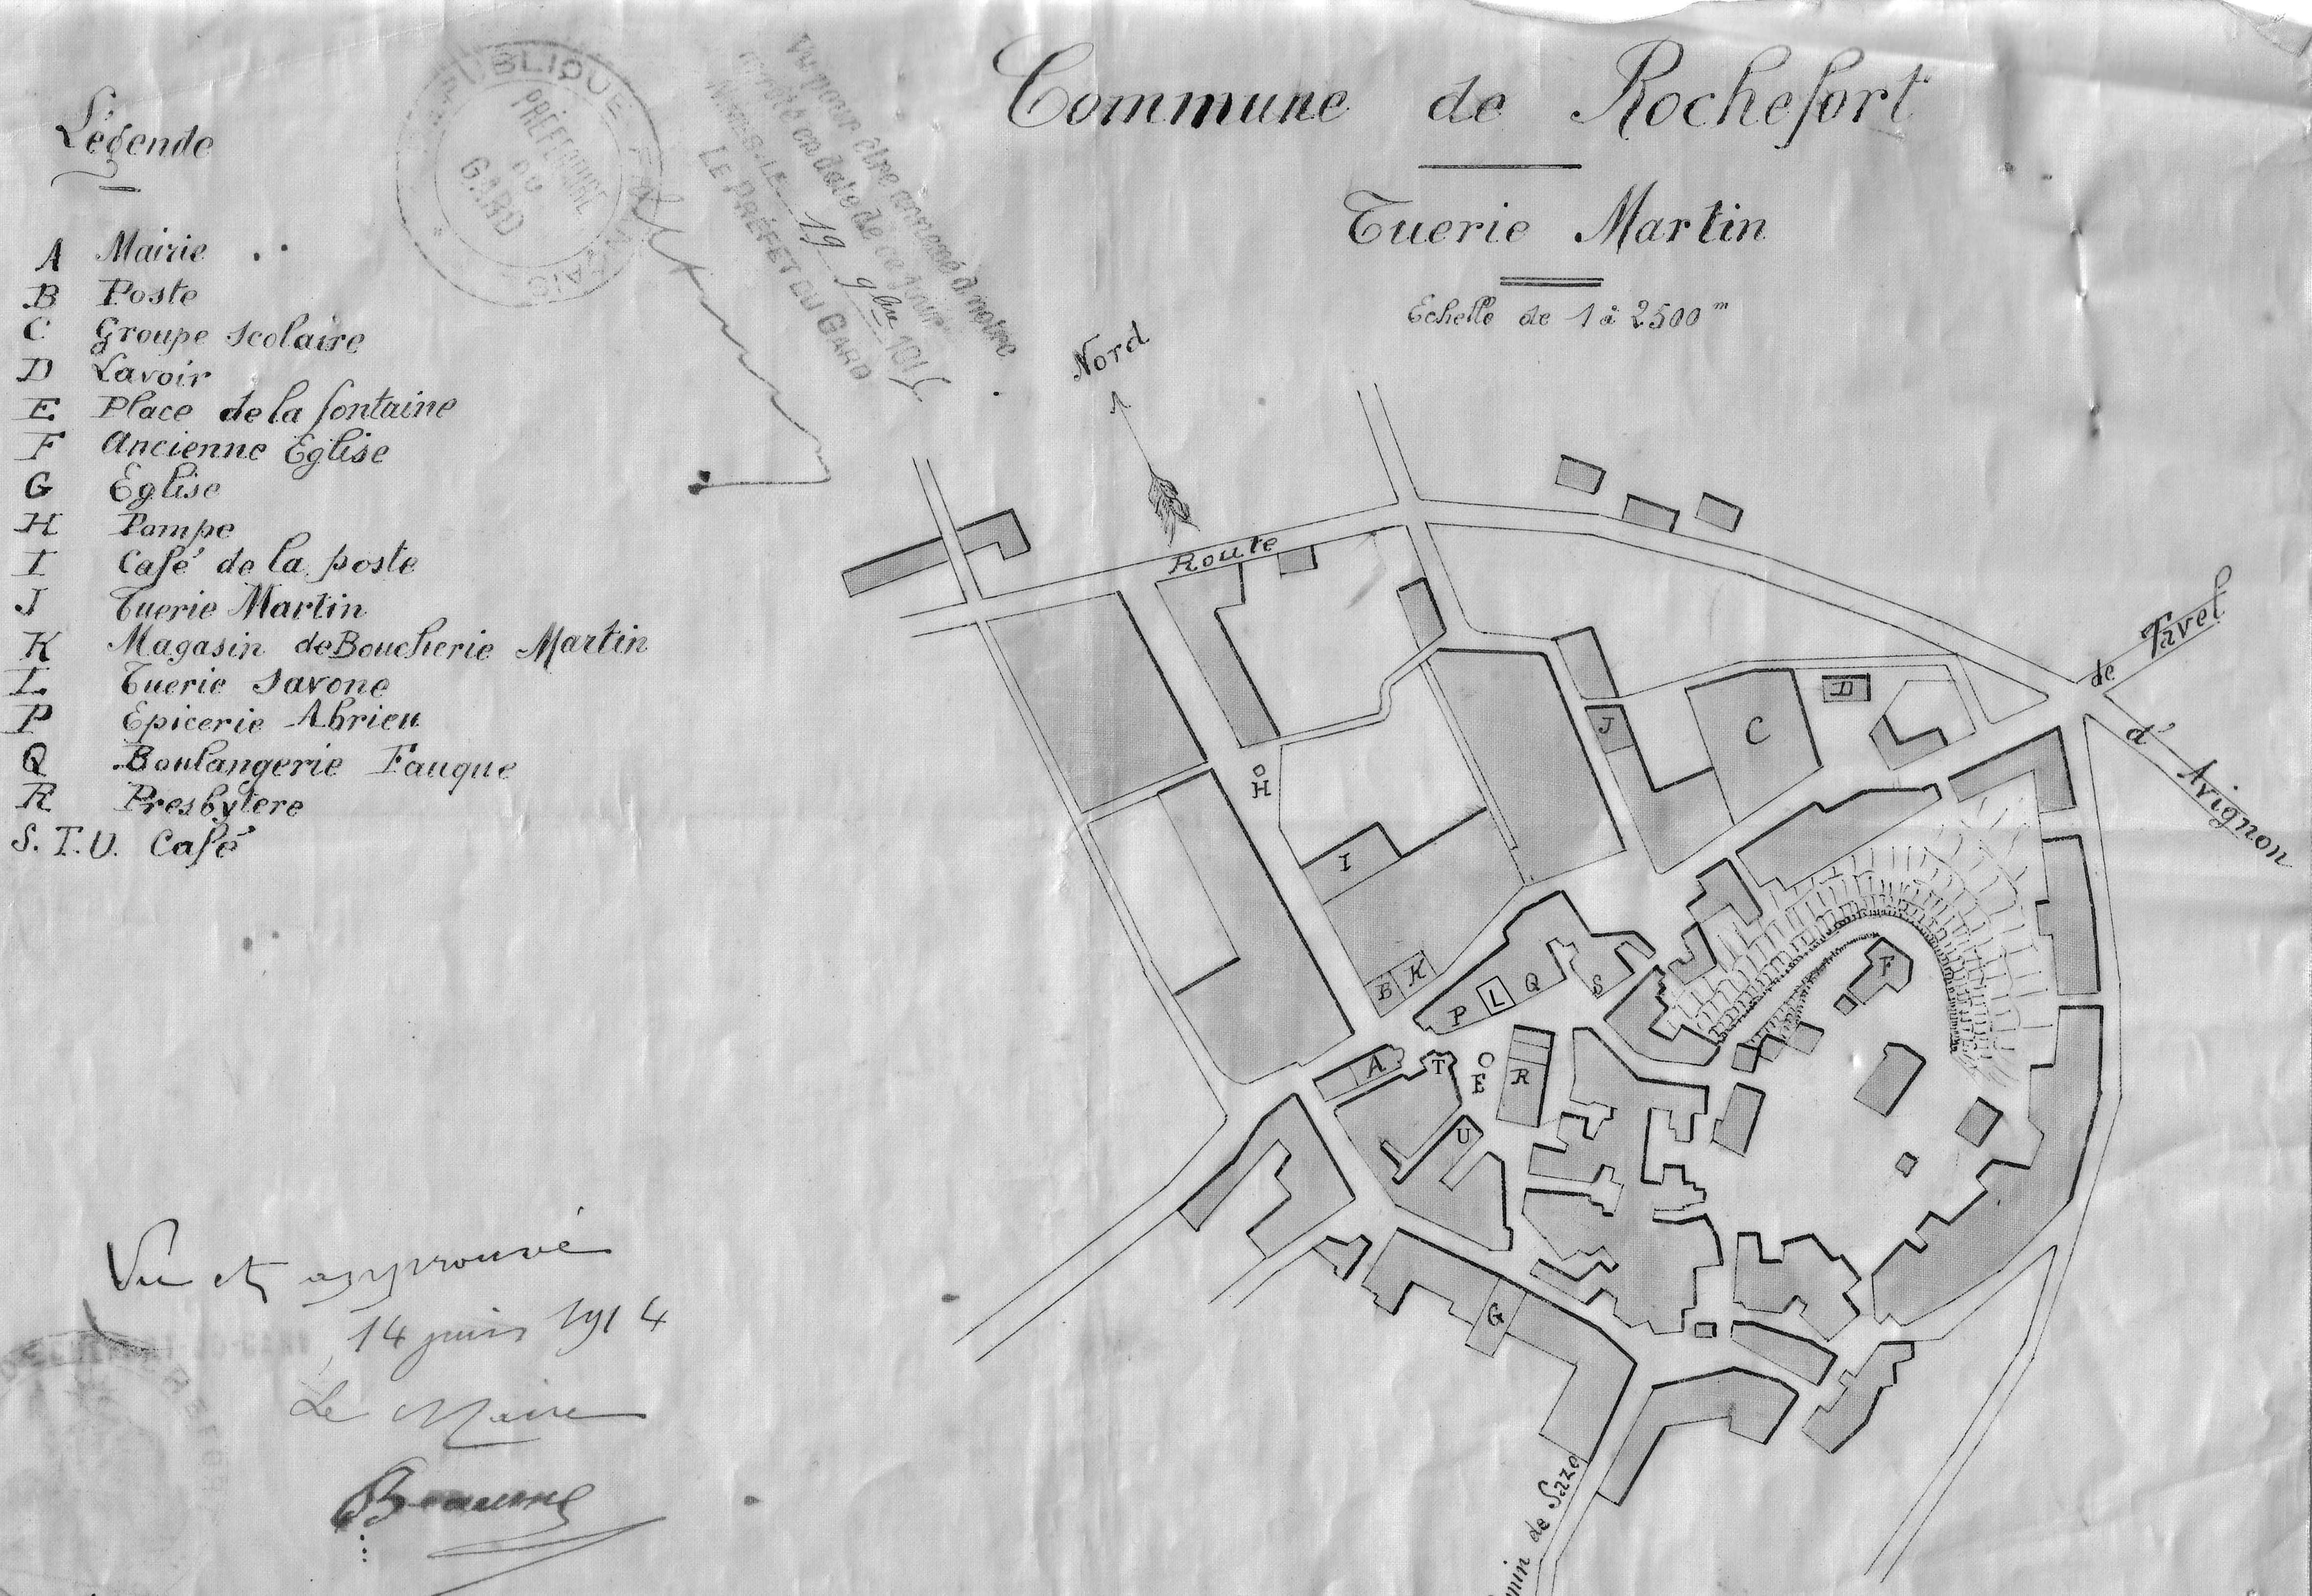 Légende
A Mairie
B Poste
C Groupe scolaire
D Lavoir
E Place de la fontaine
F Ancienne Eglise
G Eglise
H Pompe
I Café de la poste
J Tuerie Martin
K Magasin de Boucherie Martin
L Tuerie Savone
P Epicerie Abrieu
Q Boulangerie Fauque
R Presbytere
S. T. U. Café
RÉPUBLIQUE FRANÇAISE
PRÉFECTURE
DU
GARD
Vu pour être annexé à notre
arrêté en date de ce jour
NIMES, LE 19 9bre 191
LE PRÉFET DU GARD
Commune de Rochefort
Tuerie Martin
Echelle de 1 à 2500 m
Nord
Route
de Tavel
d'Avignon
D
J
C
H
I
F
B
K
P
L
Q
S
A
T
E
R
U
G
min de Saze
Vu et approuvé
14 juin 1914
Le Maire